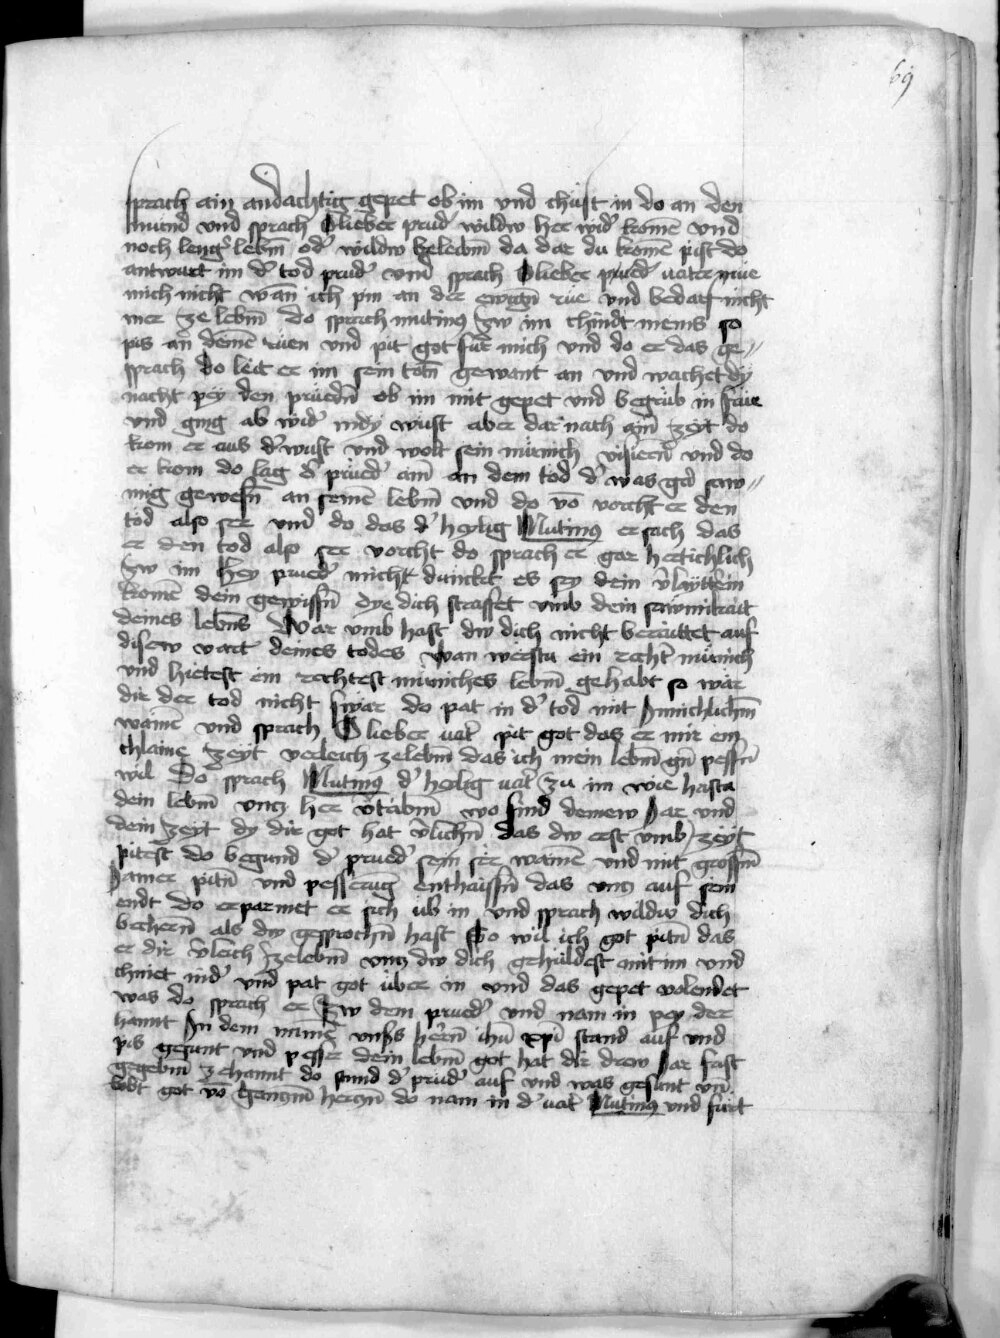 69
sprach ain andachtig gepet ob im vnd chust in do an den
mund vnd sprach O lieber prud' wildw her wid' komē vnd
noch leng' lebm̄ od' wildw beleibm̄ da dar du komē pist do
antwurt im d' tod prud' vnd sprach O lieber prued' vater mue
mich nicht wan̄ ich pin an der ewign̄ rue vnd bedarf nicht
mer ze lebm̄ do sprach mutius zw im chindt mems so
pis an̄ demē ruen vnd pit got fur mich vnd do er das ge〃
sprach do leit er im sein totn̄ gewant an vnd wachet dy
nacht pey den prüedn̄ ob im mit gepet vnd begrub in frue
vnd ging ab wid' indy wust aber dar nach ain̄ zeyt do
kom er aus d' wust vnd wolt sein münich visiern̄ vnd do
er kom do lag d' prued' ain̄ an dem tod d' was gar saw〃
mig gewesn̄ an seinē lebm̄ vnd do vō vorcht er den
tod also ser vnd do das d' heylig Mutius ersach das
er den tod also ser vorcht do sprach er gar hertichlich
zw im Hey prued' micht duncket es sey dein v'laytterin
komē dein gewissn̄ dye dich straffet vmb dein sawmikait
deines lebn̄s War vmb hast dw dich nicht berattet auf
disew vart deines todes Wan werstu ein recht' münich
vnd hietest ein rechtest müniches lebm̄ gehabt so wär
dir der tod nicht swär do pat in d' tod mit Innichlichm̄
wainē vnd sprach O lieber vat' pit got das er mir ein
chlaine zeyt verleich zelebm̄ das ich mein lebm̄ gn̄ pessn̄
wil Do sprach Mutius d' heylig vat' zu im wie hastu
dein lebm̄ vncz her v'tabm̄ wo sind deinew Jar vnd
dein zeyt dy dir got hat v'lichn̄ das dw erst vmb zeyt
pitest do begund d' prued' seyn ser wainē vnd mit grossm̄
Jamer pitn̄ vnd pesserūg enthaissn̄ das vncz auf sein
endt do erparmet er sich üb' in vnd sprach wildw dich
bechern̄ als dw gesprochn̄ hast So wil ich got pitn̄ das
er dir v'leich zelebm̄ vncz dw dich gehuldest mit im vnd
chniet nid' vnd pat got über in vnd das gepet volendet
was do sprach er zw dem prued' vnd nam in pey der
hannt In dem namē vnsers herrn̄ ihū xpī stand auf vnd
pis gesunt vnd pesser dein lebm̄ got hat dir drew Jar frist
gegebm̄ zehannt do stund d' prüd' auf vnd was gesunt vn̄
lobt got vō ganczm̄ herczn̄ do nam in d' vat' Mutius vnd furt